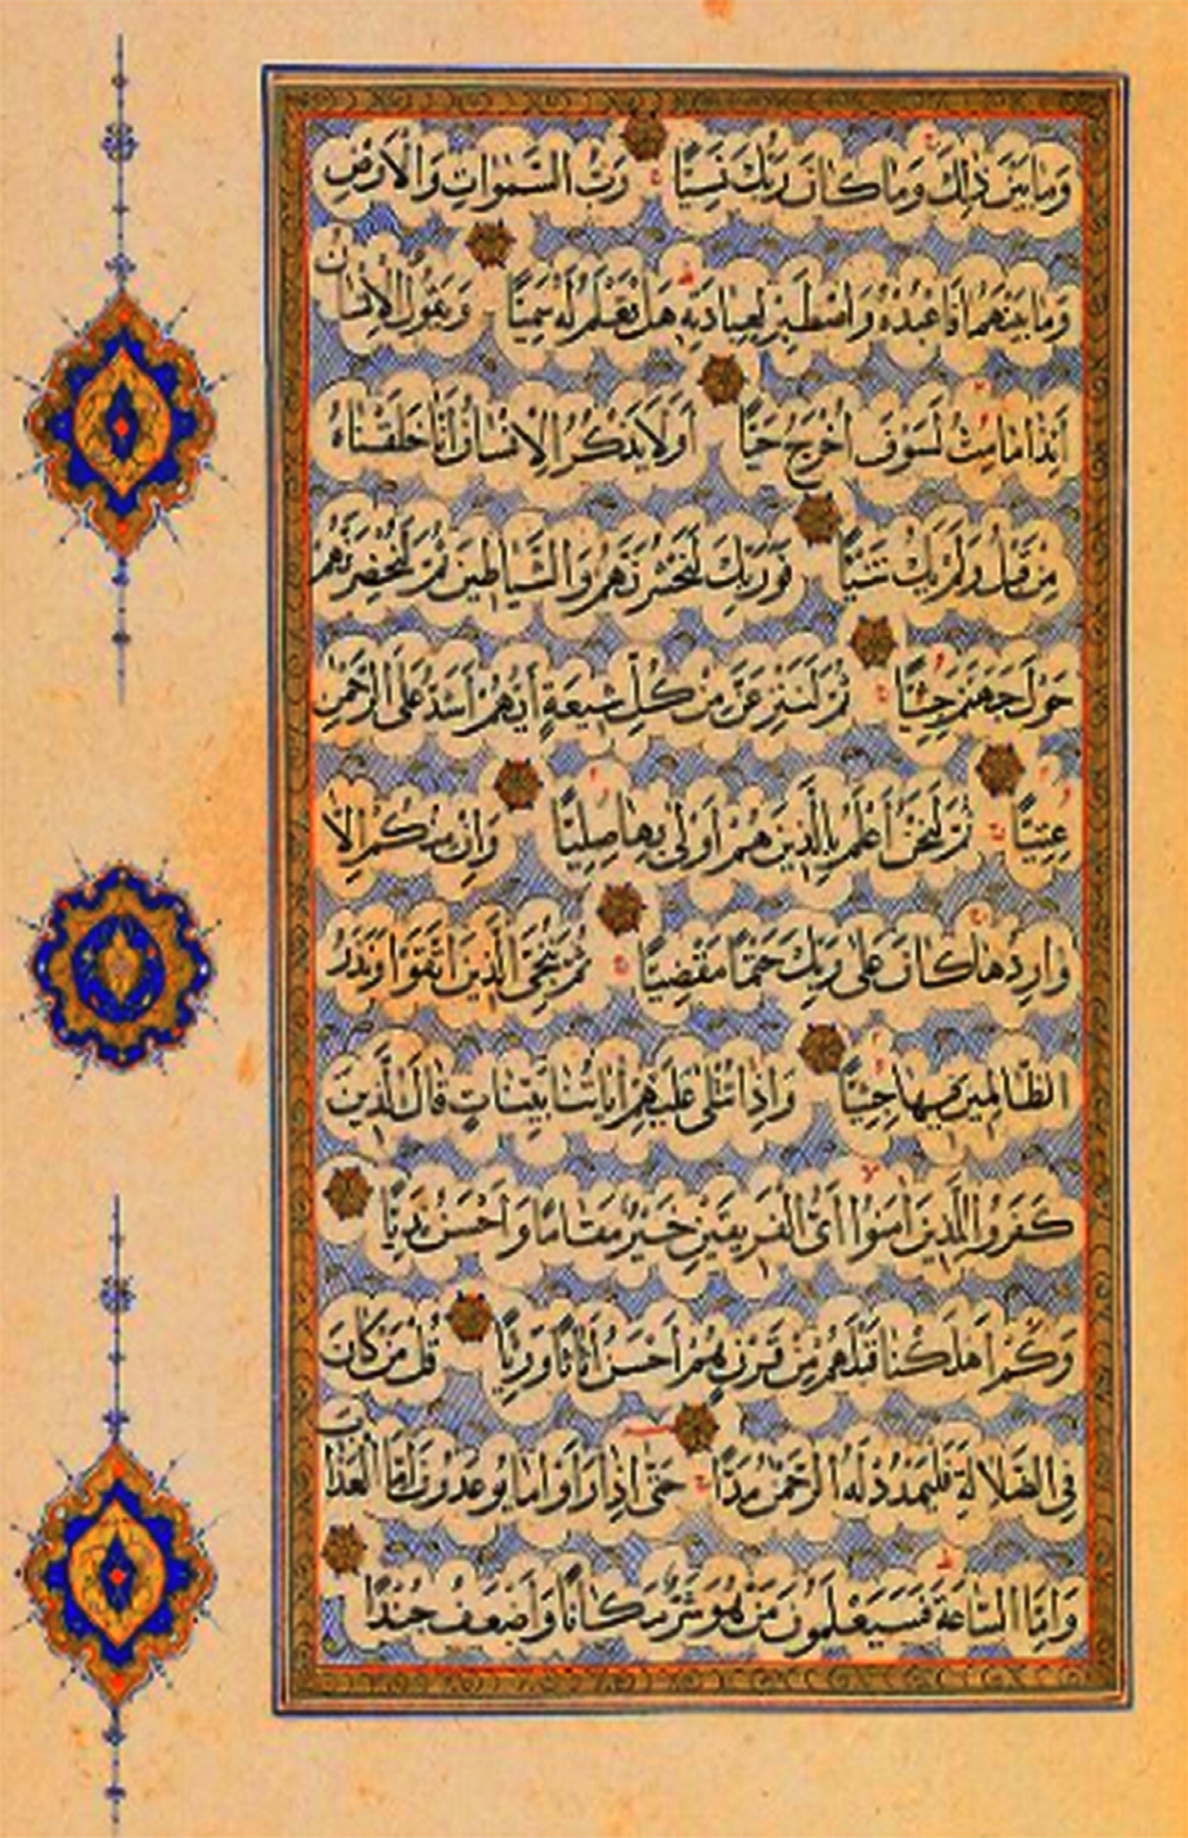 وَمَا بَيْنَ ذٰلِكَ وَمَا كَانَ رَبُّكَ نَسِيًّا رَبُّ السَّمٰوَاتِ وَالْاَرْضِ
وَمَا بَيْنَهُمَا فَاعْبُدْهُ وَاصْطَبِرْ لِعِبَادَتِهِ هَلْ تَعْلَمُ لَهُ سَمِيًّا وَيَقُولُ الْاِنْسَانُ
ءَاِذَا مَا مِتُّ لَسَوْفَ اُخْرَجُ حَيًّا اَوَلَا يَذْكُرُ الْاِنْسَانُ اَنَّا خَلَقْنَاهُ
مِنْ قَبْلُ وَلَمْ يَكُ شَيْئًا فَوَرَبِّكَ لَنَحْشُرَنَّهُمْ وَالشَّيَاطِينَ ثُمَّ لَنُحْضِرَنَّهُمْ
حَوْلَ جَهَنَّمَ جِثِيًّا ثُمَّ لَنَنْزِعَنَّ مِنْ كُلِّ شِيعَةٍ اَيُّهُمْ اَشَدُّ عَلَى الرَّحْمٰنِ
عِتِيًّا ثُمَّ لَنَحْنُ اَعْلَمُ بِالَّذِينَ هُمْ اَوْلٰى بِهَا صِلِيًّا وَاِنْ مِنْكُمْ اِلَّا
وَارِدُهَا كَانَ عَلٰى رَبِّكَ حَتْمًا مَقْضِيًّا ثُمَّ نُنَجِّي الَّذِينَ اتَّقَوْا وَنَذَرُ
الظَّالِمِينَ فِيهَا جِثِيًّا وَاِذَا تُتْلٰى عَلَيْهِمْ اٰيَاتُنَا بَيِّنَاتٍ قَالَ الَّذِينَ
كَفَرُوا لِلَّذِينَ اٰمَنُوا اَيُّ الْفَرِيقَيْنِ خَيْرٌ مَقَامًا وَاَحْسَنُ نَدِيًّا
وَكَمْ اَهْلَكْنَا قَبْلَهُمْ مِنْ قَرْنٍ هُمْ اَحْسَنُ اَثَاثًا وَرِئْيًا قُلْ مَنْ كَانَ
فِي الضَّلَالَةِ فَلْيَمْدُدْ لَهُ الرَّحْمٰنُ مَدًّا حَتّٰى اِذَا رَاَوْا مَا يُوعَدُونَ اِمَّا الْعَذَابَ
وَاِمَّا السَّاعَةَ فَسَيَعْلَمُونَ مَنْ هُوَ شَرٌّ مَكَانًا وَاَضْعَفُ جُنْدًا